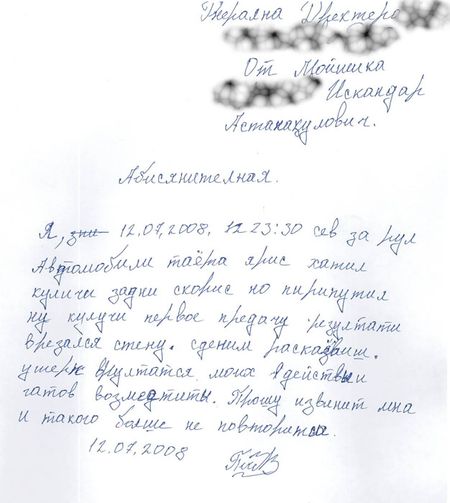 Генрална Дректеро
От Мойшика
Искандар
Астанакулович.
Абисянителная.
Я, зни 12.07,2008, 12 23:30 сев за рул
Автомобили таёта ярис хатил
куличи задни скорис но пирипутил
ну кулучи первое предачу резултати
врезался стену. сденим расказаиш.
ушерп врултатся моих действи
гатов возмедтиты. Прошу извянит мна
и такого болше не повторитса.
12.07,2008